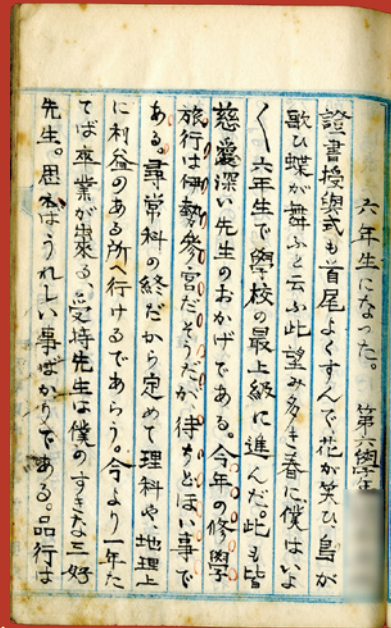 六年生になった。 第六學年
證書授與式も首尾よくすんで、花が笑ひ、鳥が
歌ひ蝶が舞ふと云ふ此望み多き春に、僕はいよ
く六年生で學校の最上級に進んだ。此も皆
慈愛深い先生のおかげである。今年の修學
旅行は伊勢參宮だそうだが、待ちどほい事で
ある。尋常科の終だから定めて理科や、地理上
に利益のある所へ行けるであらう。今より一年た
てば卒業が出來る、受持先生は僕のすきな三好
先生。思へばうれしい事ばかりである。品行は